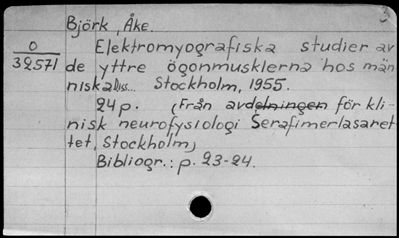 3
Björk, Åke.
O
32571
Elektromyografiska studier av
de yttre ögonmusklerna hos män
niska Diss.. Stockholm, 1955.
24 p. (Från avdelningen för kli-
nisk neurofysiologi Serafimerlasaret
tet, Stockholm)
Bibliogr.: p. 23-24.